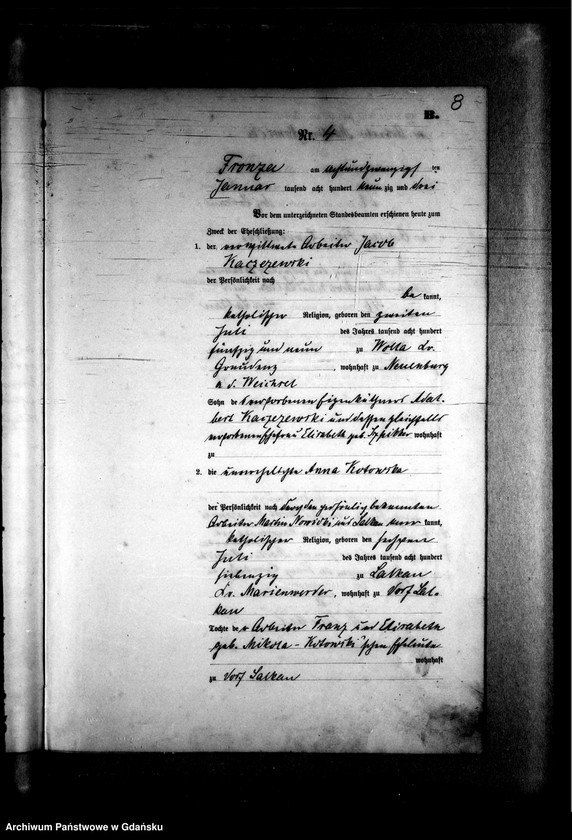 8
B.
Nr. 4
Fronza am achtundzwanzigsten
Januar tausend acht hundert neunzig und drei
Vor dem unterzeichneten Standesbeamten erschienen heute zum
Zweck der Eheschließung:
1. der verwittwete Arbeiter Jacob
Kaczezewski
der Persönlichkeit nach
be kannt,
katholischer Religion, geboren den zweiten
Juli des Jahres tausend acht hundert
fünfzig und neun zu Wolla Kr.
Graudenz, wohnhaft zu Neuenburg
a. d. Weichsel
Sohn des verstorbenen Eigenkäthners Adal-
bert Kaczezewski und dessen gleichfalls
verstorbenen Ehefrau Elisabeth geb. wohnhaft
zu
2. die unverehelichte Anna Kotowska
der Persönlichkeit nach durch den persönlich bekannten
Arbeiter Martin Nowicki aus Lalkau aner kannt,
katholischer Religion, geboren den
Juli des Jahres tausend acht hundert
siebenzig zu Lalkau
Kr. Marienwerder, wohnhaft zu Dorf Lal-
kau
Tochter der Arbeiter Franz und Elisabeth
geb. Mikola-Kotowski'schen Eheleute
wohnhaft
zu Dorf Lalkau
Archiwum Państwowe w Gdańsku